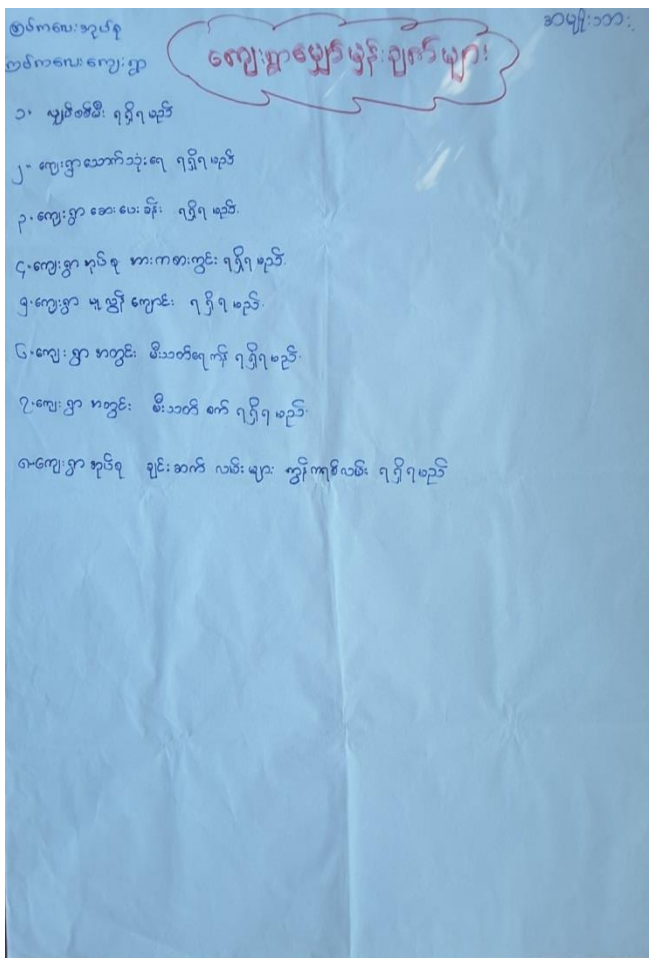 ကြပ်ကလေးအုပ်စု
ကြပ်ကလေးကျေးရွာ
ကျေးရွာမျှော်မှန်းချက်များ
အမျိုးသား
၁။ လျှပ်စစ်မီး ရရှိရမည်
၂။ ကျေးရွာသောက်သုံးရေ ရရှိရမည်
၃။ ကျေးရွာ ဆေးပေးခန်း ရရှိရမည်.
၄။ ကျေးရွာ အုပ်စု အားကစားကွင်း ရရှိရမည်.
၅။ ကျေးရွာ မူလွန် ကျောင်း ရရှိရမည်.
၆။ ကျေးရွာ အတွင်း မီးသတ်ရေကန် ရရှိရမည်.
၇။ ကျေးရွာ အတွင်း မီးသတ် စက် ရရှိရမည်.
၈။ ကျေးရွာအုပ်စု ချင်းဆက် လမ်းများ ကွန်ကရစ်လမ်း ရရှိရမည်